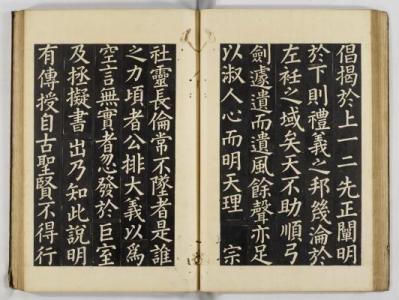 倡揭於上一二先正闡明
於下則禮義之邦幾淪於
左衽之域矣天不助順弓
劍遽遺而遺風餘聲亦足
以淑人心而明天理 宗
社靈長倫常不墜者是誰
之力頃者公排大義以為
空言無實者忽發於巨室
及拯擬書出乃知此說明
有傳授自古聖賢不得行